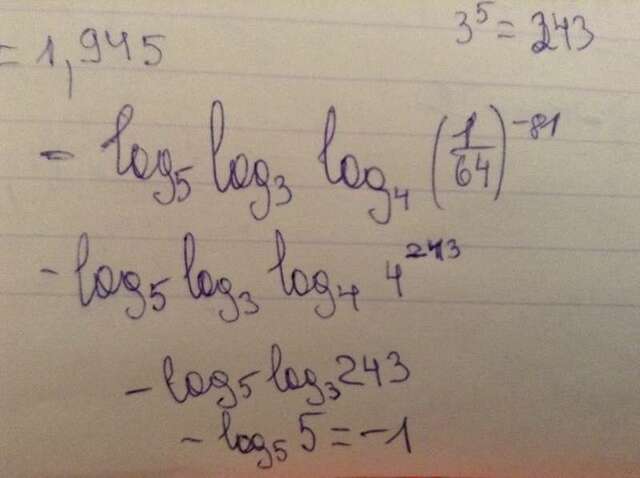 = 1,945
3⁵ = 243
- log₅ log₃ log₄ (1/64)⁻⁸¹
- log₅ log₃ log₄ 4²⁴³
- log₅ log₃ 243
- log₅ 5 = -1